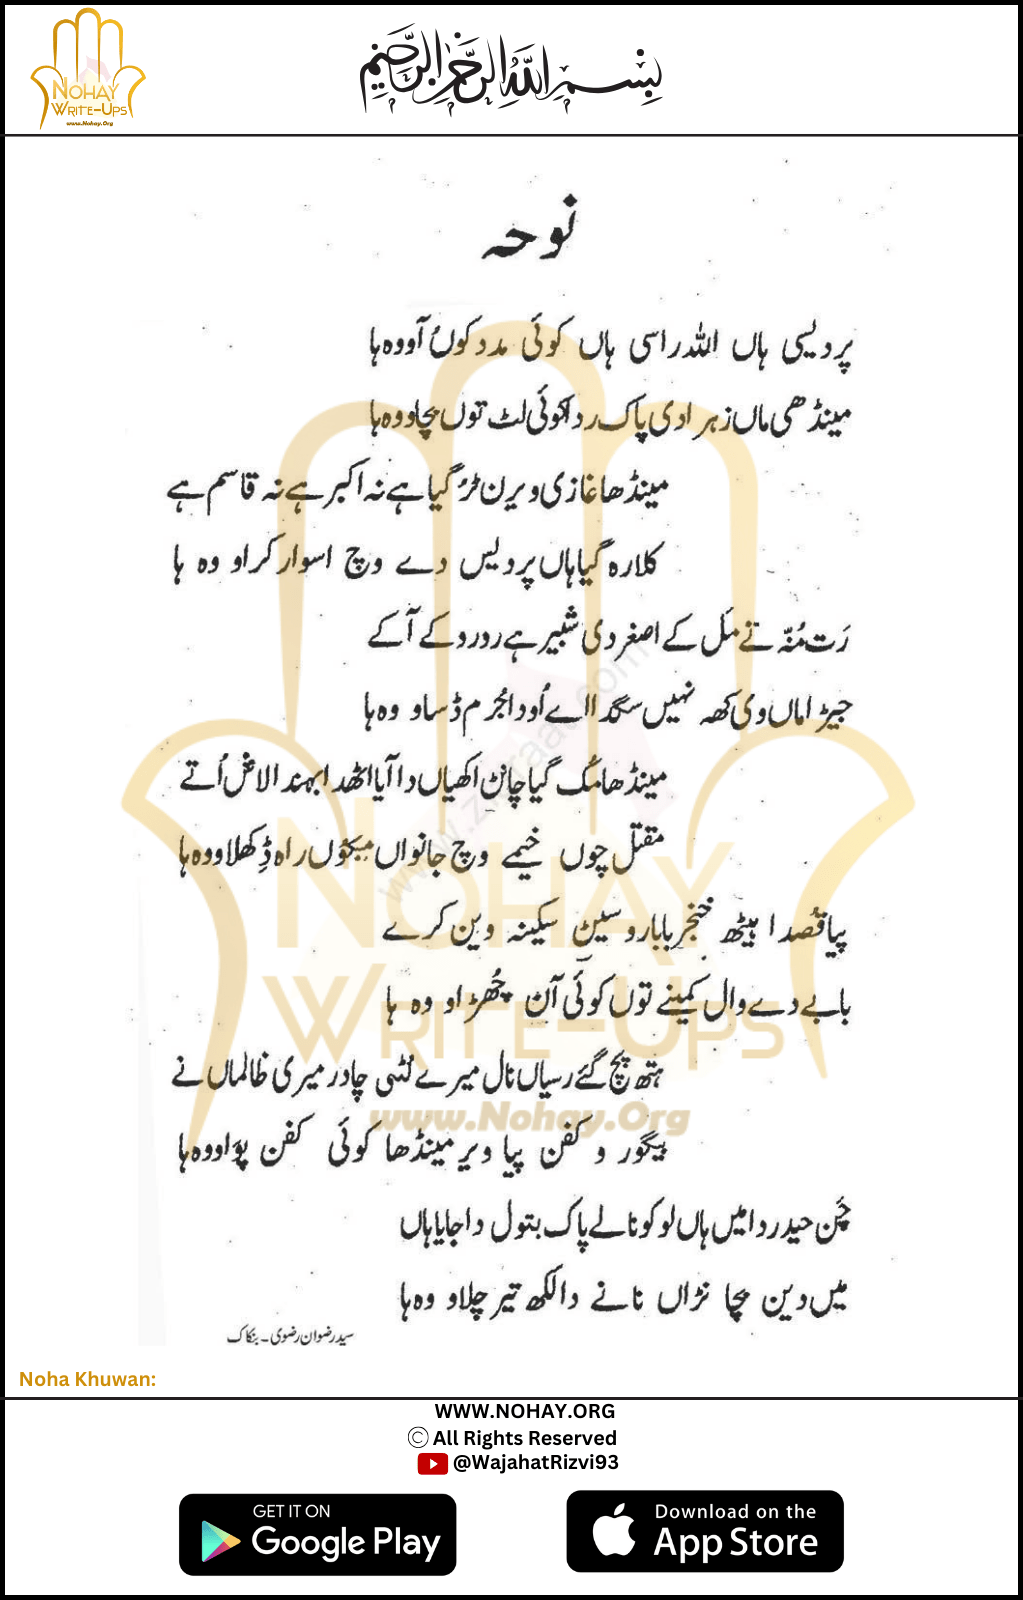 NOHAY
WRITE-UPS
www.Nohay.Org
بسم الله الرحمن الرحيم
نوحہ
پردیسی ہاں اللہ راسی ہاں کوئی مدد کوں آووہا
مینڈھی ماں زہرا دی پاک ردا کوئی لٹ توں بچاووہا
مینڈھا غازی ویرن ٹر گیا ہے نہ اکبر ہے نہ قاسم ہے
کلا رہ گیا ہاں پردیس دے وچ اسوار کراو وہ ہا
رَت مُنہ تے مَل کے اصغر دی شبیر ہے رو رو کے آکے
جیڑا اماں وی کھہ نہیں سگدا اے اُودا جُرم ڈساو وہ ہا
مینڈھا مُک گیا چانن اکھیاں دا آیا اٹھدا بہندا لاش اُتے
مقتل چوں خیمے وچ جانواں میکوں راہ ڈِکھلاووہ ہا
پیا قصدا ہیٹھ خنجر بابا رو سین سکینہ وین کرے
بابے دے وال کمینے توں کوئی آن چھُڑاو وہ ہا
ہتھ بچ گئے رسیاں نال میرے لُٹی چادر میری ظالماں نے
بیگور و کفن پیا ویر مینڈھا کوئی کفن پواووہ ہا
چَن حیدر دا میں ہاں لوکو نالے پاک بتول دا جایا ہاں
میں دین بچا نڑاں نانے دا لکھ تیر چلاو وہ ہا
سید رضوان رضوی۔ بنکاک
www.ziaraat.com
NOHAY
WRITE-UPS
www.Nohay.Org
Noha Khuwan:
WWW.NOHAY.ORG
© All Rights Reserved
@WajahatRizvi93
GET IT ON
Google Play
Download on the
App Store